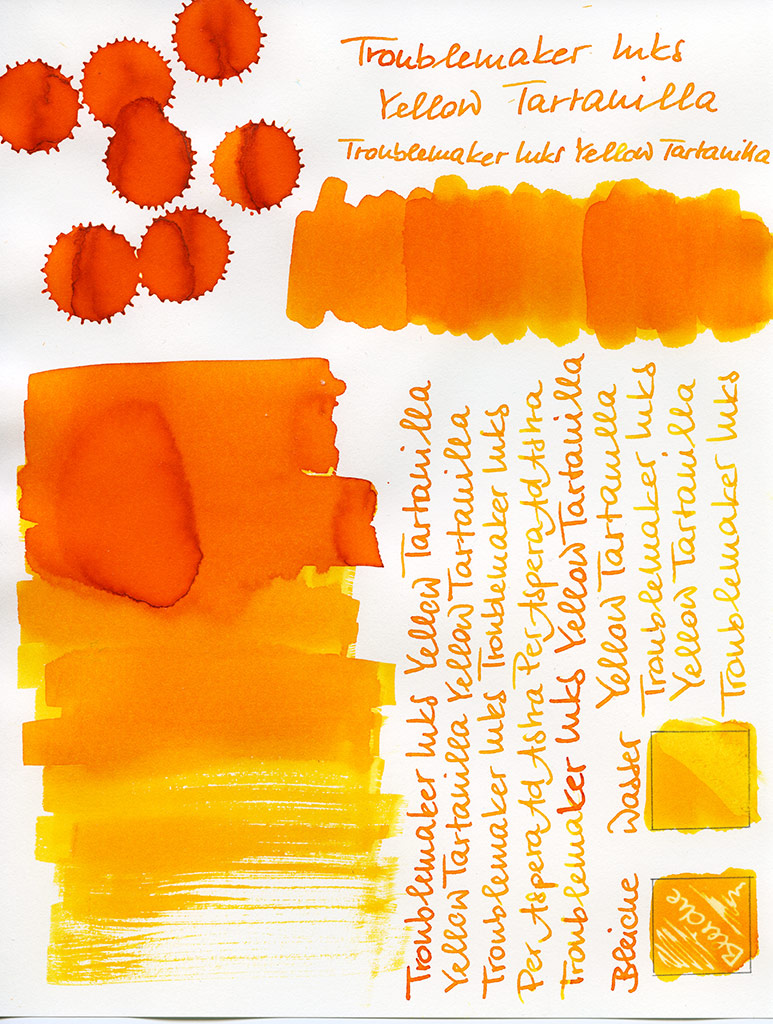 Troublemaker Inks
Yellow Tartanilla
Troublemaker Inks Yellow Tartanilla
Troublemaker Inks Yellow Tartanilla
Yellow Tartanilla Yellow Tartanilla
Troublemaker Inks Troublemaker Inks
Per Aspera Ad Astra Per Aspera Ad Astra
Troublemaker Inks Yellow Tartanilla
Yellow Tartanilla
Troublemaker Inks
Yellow Tartanilla
Troublemaker Inks
Wasser
Bleiche
Bleiche